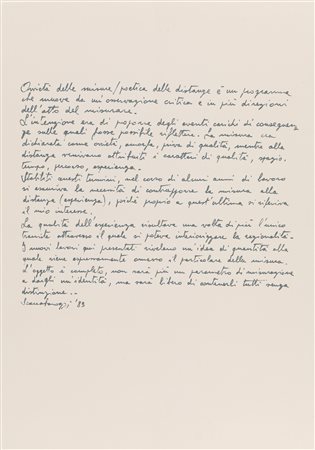 Ovvietà delle misure/poetica delle distanze è un programma
che muove da un'osservazione critica e in più direzioni
dell'atto del misurare.
L'intenzione era di proporre degli eventi carichi di conseguenze
sulle quali fosse possibile riflettere. La misura era
dichiarata come ovvietà, amorfa, priva di qualità, mentre alla
distanza venivano attribuiti i caratteri di qualità, spazio,
tempo, processo, esperienza.
Stabiliti questi termini, nel corso di alcuni anni di lavoro
si esauriva la necessità di contrapporre la misura alla
distanza (esperienza), poiché proprio a quest'ultima si riferiva
il mio interesse.
La qualità dell'esperienza risultava una volta di più l'unico
tramite attraverso il quale si poteva interiorizzare la
I nuovi lavori qui presentati rivelano un'idea di quantità alla
quale viene espressamente omesso il particolare della misura.
L'oggetto è completo, non sarà più un parametro di misurazione
a dargli un'identità, ma sarà libero di contenerli tutti senza
distinzione..
'83